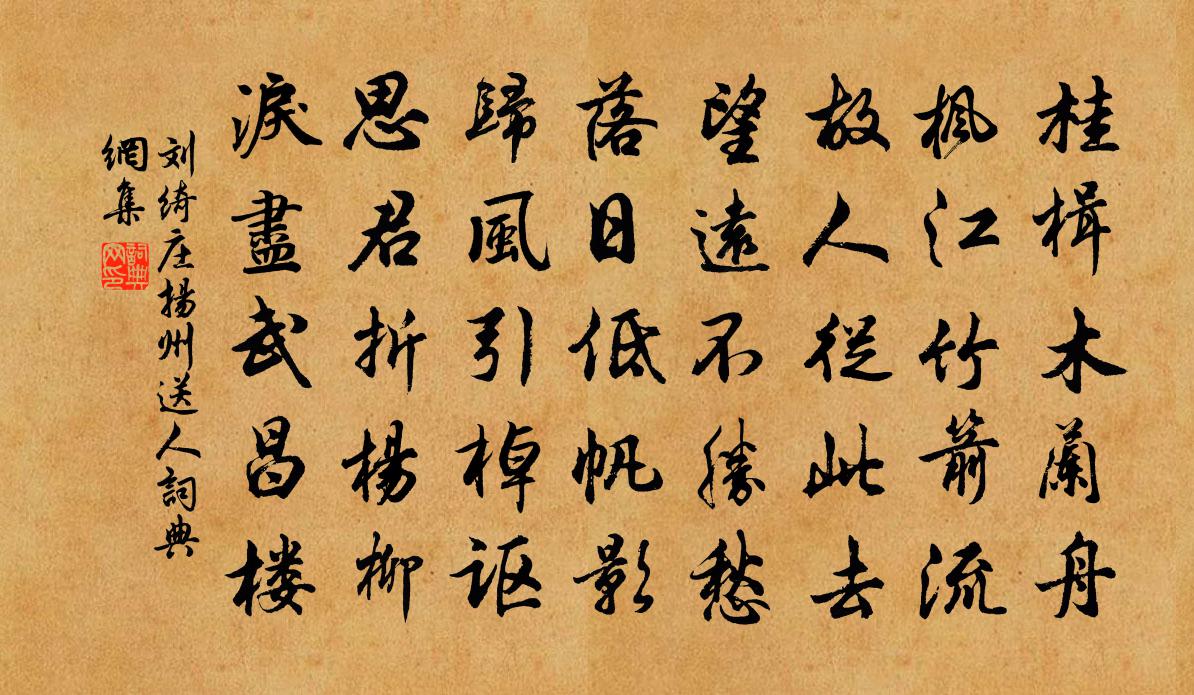 桂楫木蘭舟
楓江竹箭流
故人從此去
望遠不勝愁
落日低帆影
歸風引棹讴
思君折楊柳
淚盡武昌楼
刘绮庄揚州送人詞典
網集
詞典
网印